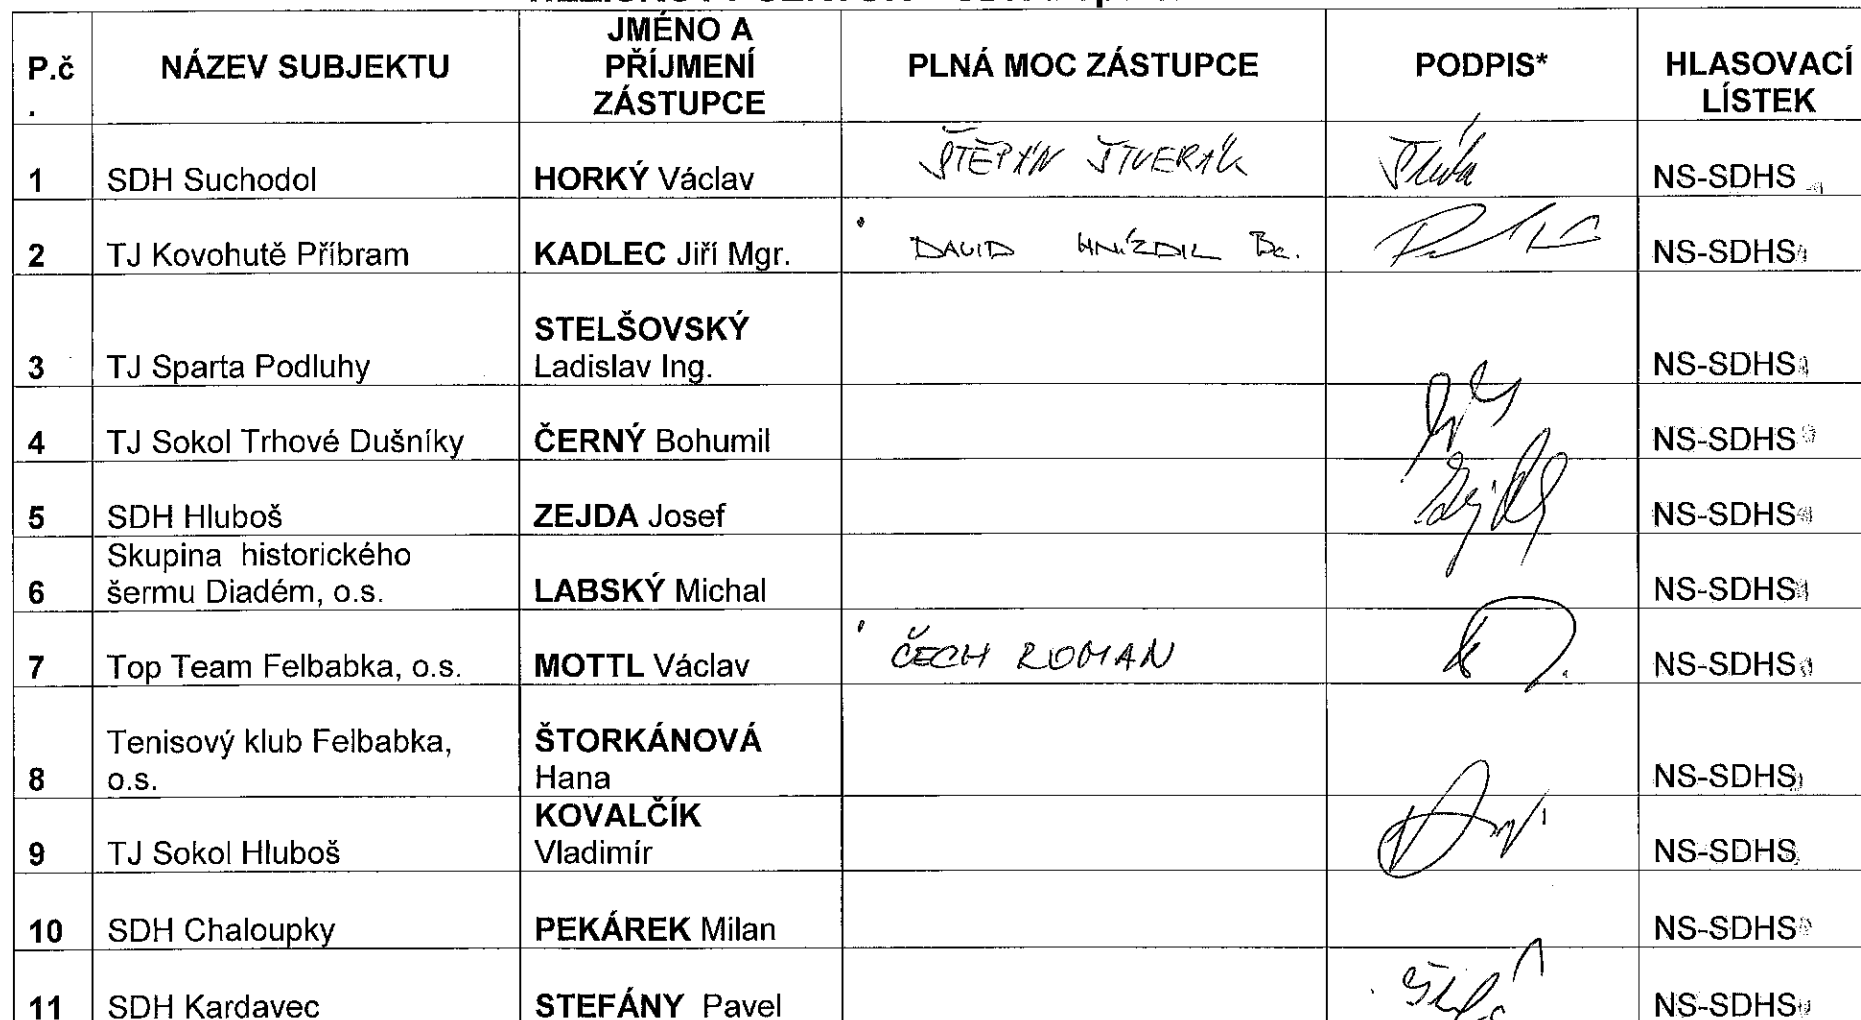 P.č NÁZEV SUBJEKTU JMÉNO A PŘÍJMENÍ ZÁSTUPCE PLNÁ MOC ZÁSTUPCE PODPIS* HLASOVACÍ LÍSTEK
.
1 SDH Suchodol HORKÝ Václav ŠTĚPÁN ŠTVERÁK NS-SDHS
2 TJ Kovohutě Příbram KADLEC Jiří Mgr. DAVID HNÍZDIL Bc. NS-SDHS
3 TJ Sparta Podluhy STELŠOVSKÝ Ladislav Ing. NS-SDHS
4 TJ Sokol Trhové Dušníky ČERNÝ Bohumil NS-SDHS
5 SDH Hluboš ZEJDA Josef NS-SDHS
6 Skupina historického šermu Diadém, o.s. LABSKÝ Michal NS-SDHS
7 Top Team Felbabka, o.s. MOTTL Václav ČECH ROMAN NS-SDHS
8 Tenisový klub Felbabka, o.s. ŠTORKÁNOVÁ Hana NS-SDHS
9 TJ Sokol Hluboš KOVALČÍK Vladimír NS-SDHS
10 SDH Chaloupky PEKÁREK Milan NS-SDHS
11 SDH Kardavec STEFÁNY Pavel NS-SDHS